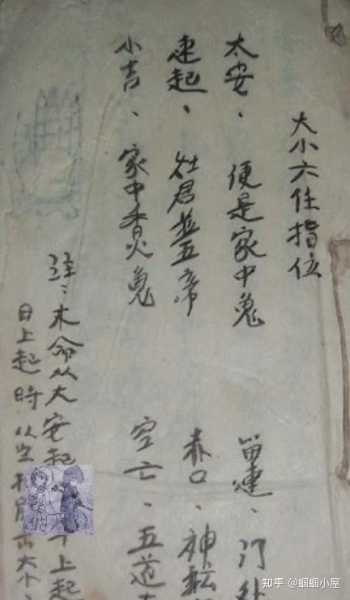 大小六任指位
太安、便是家中鬼
留連、门外
速起、灶君並五帝
赤口、神
小吉、家中香火鬼
空亡、五道
注:木命从大安起 上起
日上起時从空 大小
知乎 @蝈蝈小屋